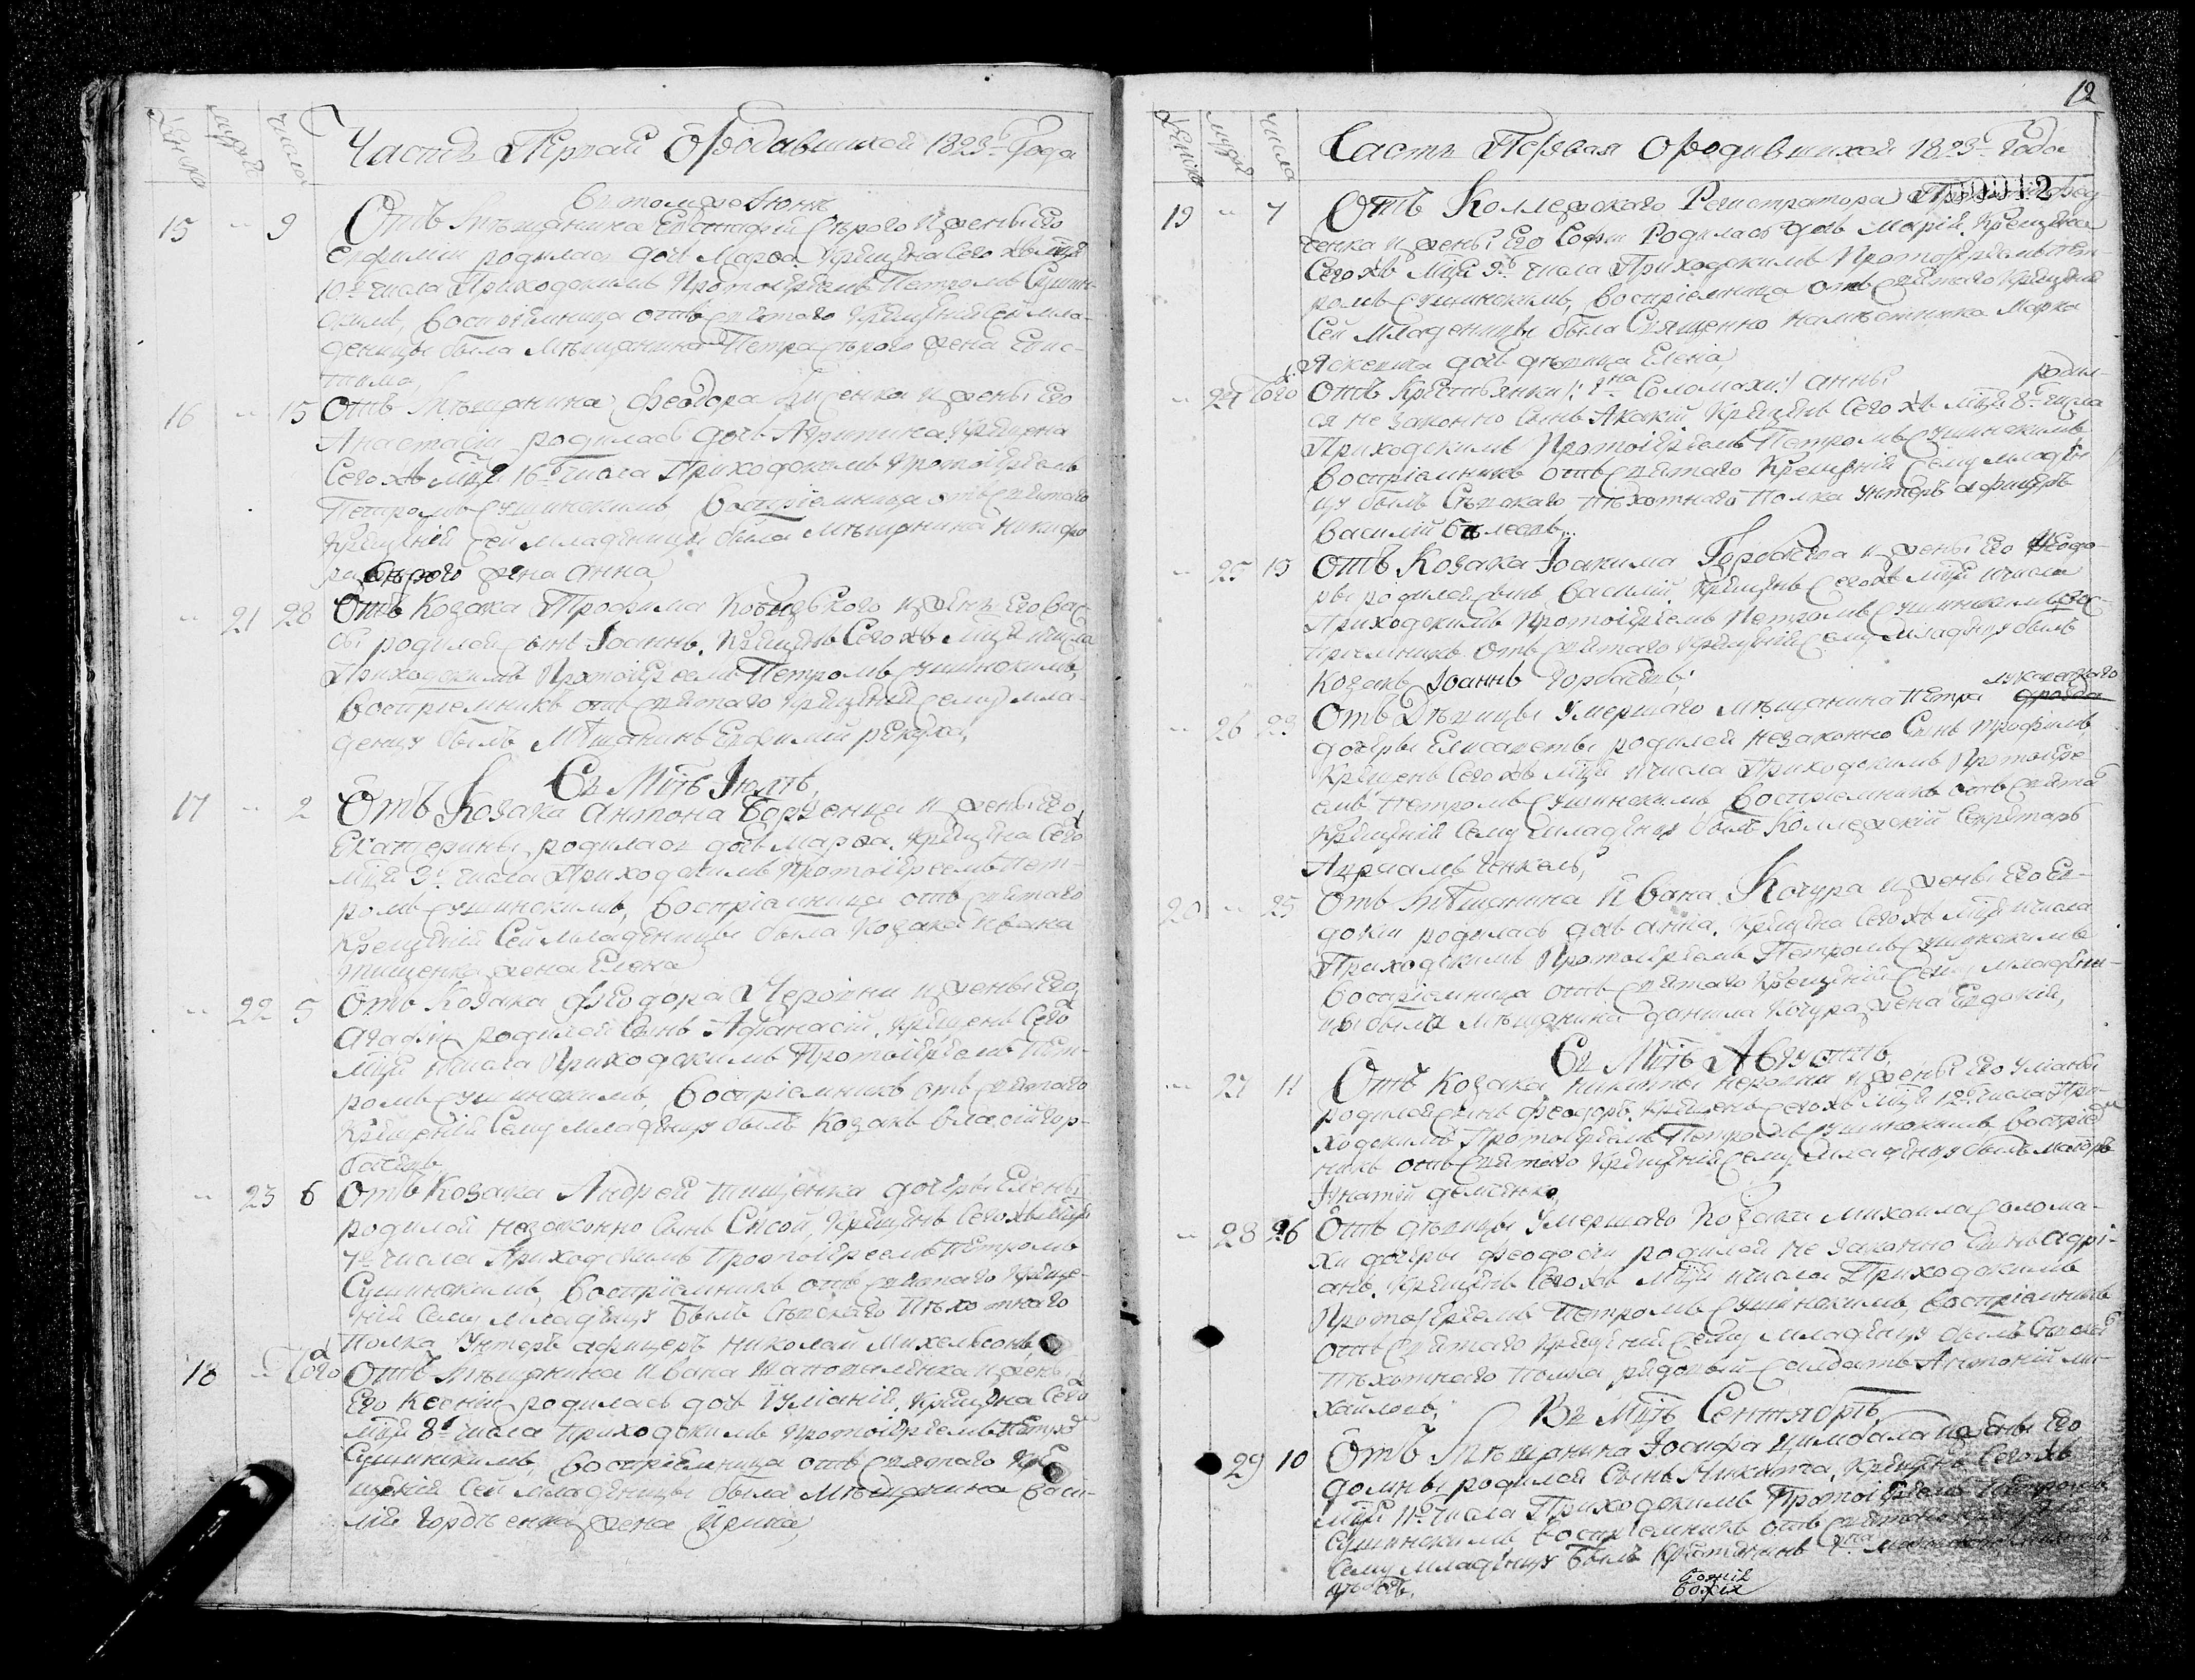 Женска
мужск
числа
Часть Первая о родившихся 1823го Года
Въ томже Іюнѣ
15 " 9 Отъ Мѣщанина Евстафія Сѣрого и жены Его
Евфиміи родилась дочь Марѳа крещена Сего жъ мца
10го числа Приходскимъ Протоіереемъ Петромъ Сушин-
скимъ, воспріемница отъ святаго крещенія Сей мла-
деницы была Мѣщанина Петра Сѣрого жена Евѳи-
16 " 15 Отъ Мѣщанина Феодора жены Его
Анастасіи родилась дочь Агрипина крещена
Сего жъ мца 16го числа Приходскимъ Протоіереемъ
Петромъ Сушинскимъ воспріемница отъ святаго
крещенія Сей младеницы была Мѣщанина Никифо
ра Сѣрого жена Анна
" 21 28 Отъ Козака Трофима и жены Его Вас-
сы родился сынъ Іоаннъ, крещенъ Сего жъ мца числа
Приходскимъ Протоіереемъ Петромъ Сушинскимъ,
воспріемникъ отъ святаго крещенія сему мла-
денцу былъ Мѣщанинъ Евфимій
Въ Мцѣ Іюлѣ,
17 " 2 Отъ Козака Антона и жены Его
Екатерины родилась дочь Марѳа, крещена Сего ж
мца 3го числа Приходскимъ Протоіереемъ Пет-
ромъ Сушинскимъ, воспріемница отъ святаго
Крещенія Сей младеницы была Козака Ивана
Тищенка жена Елена
" 22 5 Отъ Козака Феодора и жены Его
Агафіи родился сынъ Афанасій, крещенъ Сего ж
мца числа Приходскимъ Протоіереемъ Пет-
ромъ Сушинскимъ, воспріемникъ отъ святаго
Крещенія Сему младенцу былъ Козакъ Власій Гор-
батъ
" 23 6 Отъ Козака Андрея Тищенка дочери Елены
родился незаконно сынъ Сисой, крещенъ Сего жъ мца
7го числа Приходскимъ Протоіереемъ Петромъ
Сушинскимъ, воспріемникъ отъ святаго креще-
нія Сему младенцу былъ Сѣвскаго Пѣхотнаго
Полка Унтеръ афицеръ Николай Михельсонъ
18 " Того ж Отъ Мѣщанина Ивана Шаповаленка и жены
Его Ксеніи родилась дочь Іуліанія, крещена Сего ж
мца 8го числа Приходскимъ Протоіереемъ Петромъ
Сушинскимъ, воспріемница отъ святаго кре
щенія Сей младеницы была Мѣщанина Васи-
лія Гордѣенка жена Ирина,
12
Женска
мужск
числа
Часть Первая о родившихся 1823го Года
00012
19 " 7 Отъ Коллежскаго Регистратора
ченка и жены Его Софіи Родилась дочь Марія, Крещена
Сего жъ Мца 9го числа Приходскимъ Протоіереемъ Пет-
ромъ Сушинскимъ, воспріемница отъ святаго Крещенія
Сей Младеницы была Священно намѣстника Марка
дочь дѣвица Елена,
" 24 Того ж Отъ Крестьянки Соломахи Анны родил-
ся не законно сынъ Акакій крещенъ Сего жъ мца 8го числа
Приходскимъ Протоіереемъ Петромъ Сушинскимъ
воспріемникъ отъ святаго Крещенія Сему младен
цу былъ Сѣвскаго Пѣхотнаго Полка Унтеръ афицеръ
Василій
" 25 15 Отъ Козака Іоакима Горбатка и жены Его Феодо-
ры родился сынъ Василій, крещенъ Сего жъ Мца числа
Приходскимъ Протоіереемъ Петромъ Сушинскимъ вос-
пріемникъ отъ святаго крещенія Сему Младенцу былъ
Козакъ Іоаннъ Горбатъ,
" 26 23 Отъ Дѣвицы Умершаго Мѣщанина Петра
дочери Елисаветы родился незаконно Сынъ Трофимъ,
Крещенъ Сего жъ мца числа Приходскимъ Протоіере
емъ Петромъ Сушинскимъ воспріемникъ отъ свята
Крещенія Сему младенцу былъ Коллежскій Секретарь
20 " 25 Отъ Мѣщанина Ивана Кочура и жены Его Ев-
докіи родилась дочь Анна, Крещена Сего жъ мца числа
Приходскимъ Протоіереемъ Петромъ Сушинскимъ
воспріемница отъ святаго Крещенія Сей младени-
цы была мѣщанина Данила Кочура жена Евдокія,
Въ Мцѣ Августѣ,
" 27 11 Отъ Козака Никиты и жены Его Уліаны
родился сынъ Феодоръ, Крещенъ Сего жъ Мца 12го числа При-
ходскимъ Протоіереемъ Петромъ Сушинскимъ воспріем
никъ отъ святаго Крещенія Сему Младенцу былъ
Игнатій Демченко,
" 28 26 Отъ дѣвицы Умершаго Козака Михаила Солома-
хи дочери Феодосіи родился не законно Сынъ Адрі-
анъ, крещенъ Сего жъ Мца числа Приходскимъ
Протоіереемъ Петромъ Сушинскимъ, воспріемникъ
отъ святаго крещенія Сему Младенцу былъ Сѣвскаго
Пѣхотнаго Полка рядовый солдатъ Антоній Ми-
хайловъ,
Въ Мцѣ Сентябрѣ,
" 29 10 Отъ Мѣщанина Іосифа Цимбала и жены Его
Домны родился Сынъ Никита, крещенъ Сего жъ
Мца 11го числа Приходскимъ Протоіереемъ Петромъ
Сушинскимъ воспріемникъ отъ святаго
Сему младенцу былъ Крестьянинъ